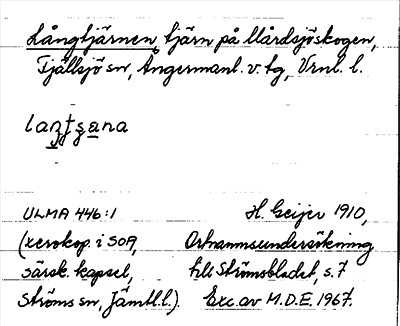 Långtjärnen, tjärn på Mårdsjöskogen,
Fjällsjö sn, Ångermanl. v. tg, Vrnl. l.
laŋtʂana
ULMA 446:1 H. Geijer 1910,
(xerokop. i SOA, Ortnamnsundersökning
särsk. kapsel, till Strömsbladet, s. 7
Ströms sn, Jämtl.l.). Exc. av M.D.E. 1967.